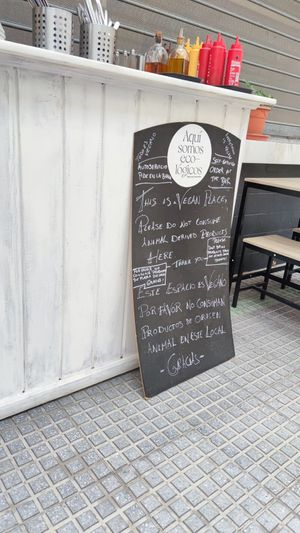 Aquí
somos
eco-
lógicos
AUTOSERVICIO
PIDE EN LA BARRA
SELF-SERVICE
ORDER AT
THE BAR
THIS IS A VEGAN PLACE,
PLEASE DO NOT CONSUME
ANIMAL DERIVED PRODUCTS
HERE
THANK YOU
ESTE ESPACIO ES VEGANO
POR FAVOR NO CONSUMAN
PRODUCTOS DE ORIGEN
ANIMAL EN ESTE LOCAL
-GRACIAS-